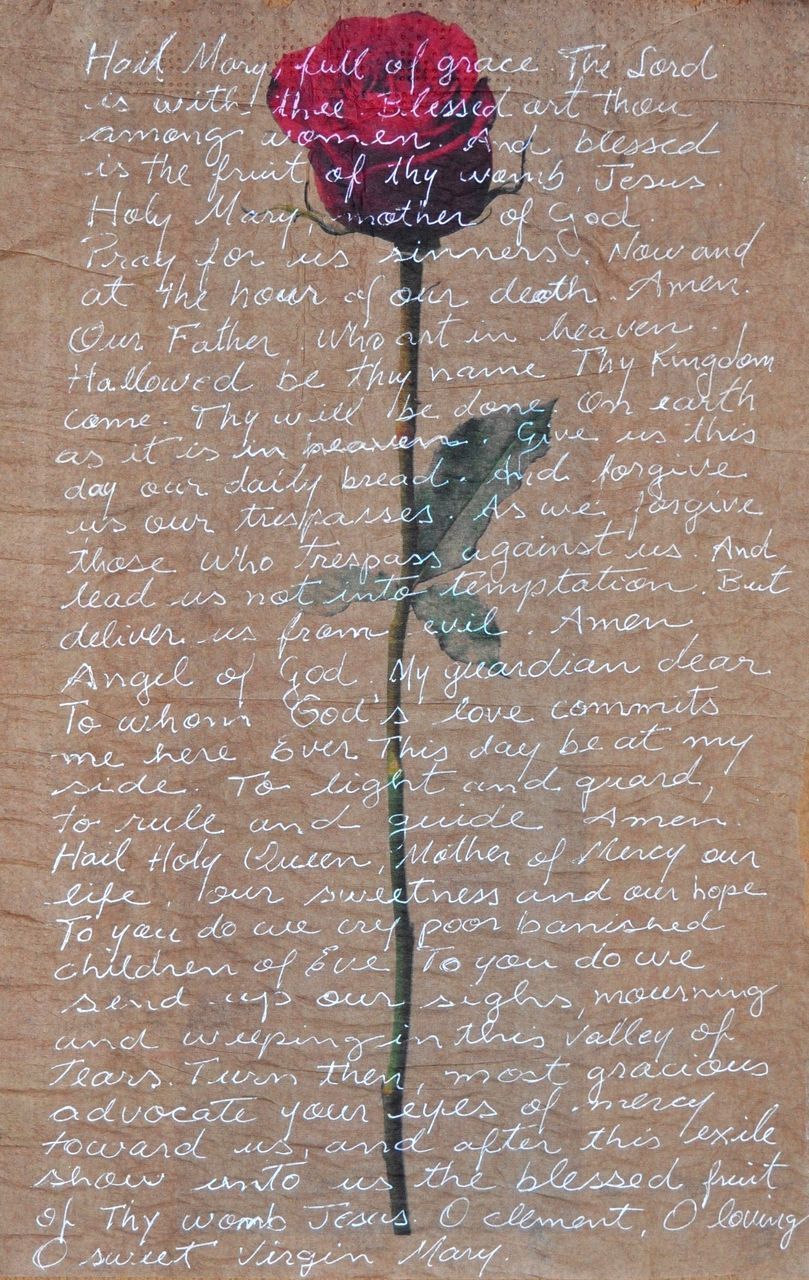 Hail Mary, full of grace The Lord
is with thee Blessed art thou
among women. And blessed
is the fruit of thy womb, Jesus.
Holy Mary mother of God.
Pray for us sinners. Now and
at the hour of our death. Amen.
Our Father, Who art in heaven.
Hallowed be thy name Thy Kingdom
come. Thy will be done On earth
as it is in heaven. Give us this
day our daily bread. And forgive
us our trespasses. As we forgive
those who trespass against us. And
lead us not into temptation. But
deliver us from evil. Amen
Angel of God, My guardian dear
To whom God's love commits
me here Ever This day be at my
side. To light and guard,
to rule and guide Amen.
Hail Holy Queen, Mother of Mercy our
life, our sweetness and our hope
To you do we cry poor banished
children of Eve To you do we
send up our sighs, mourning
and weeping in this valley of
Tears. Turn then, most gracious
advocate your eyes of mercy
toward us, and after this exile
show unto us the blessed fruit
of Thy womb Jesus. O clement, O loving
O sweet Virgin Mary.